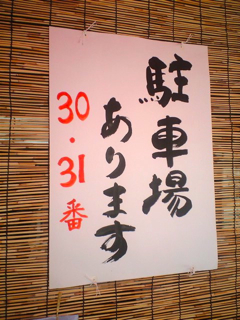 駐車場
あります
30・31番